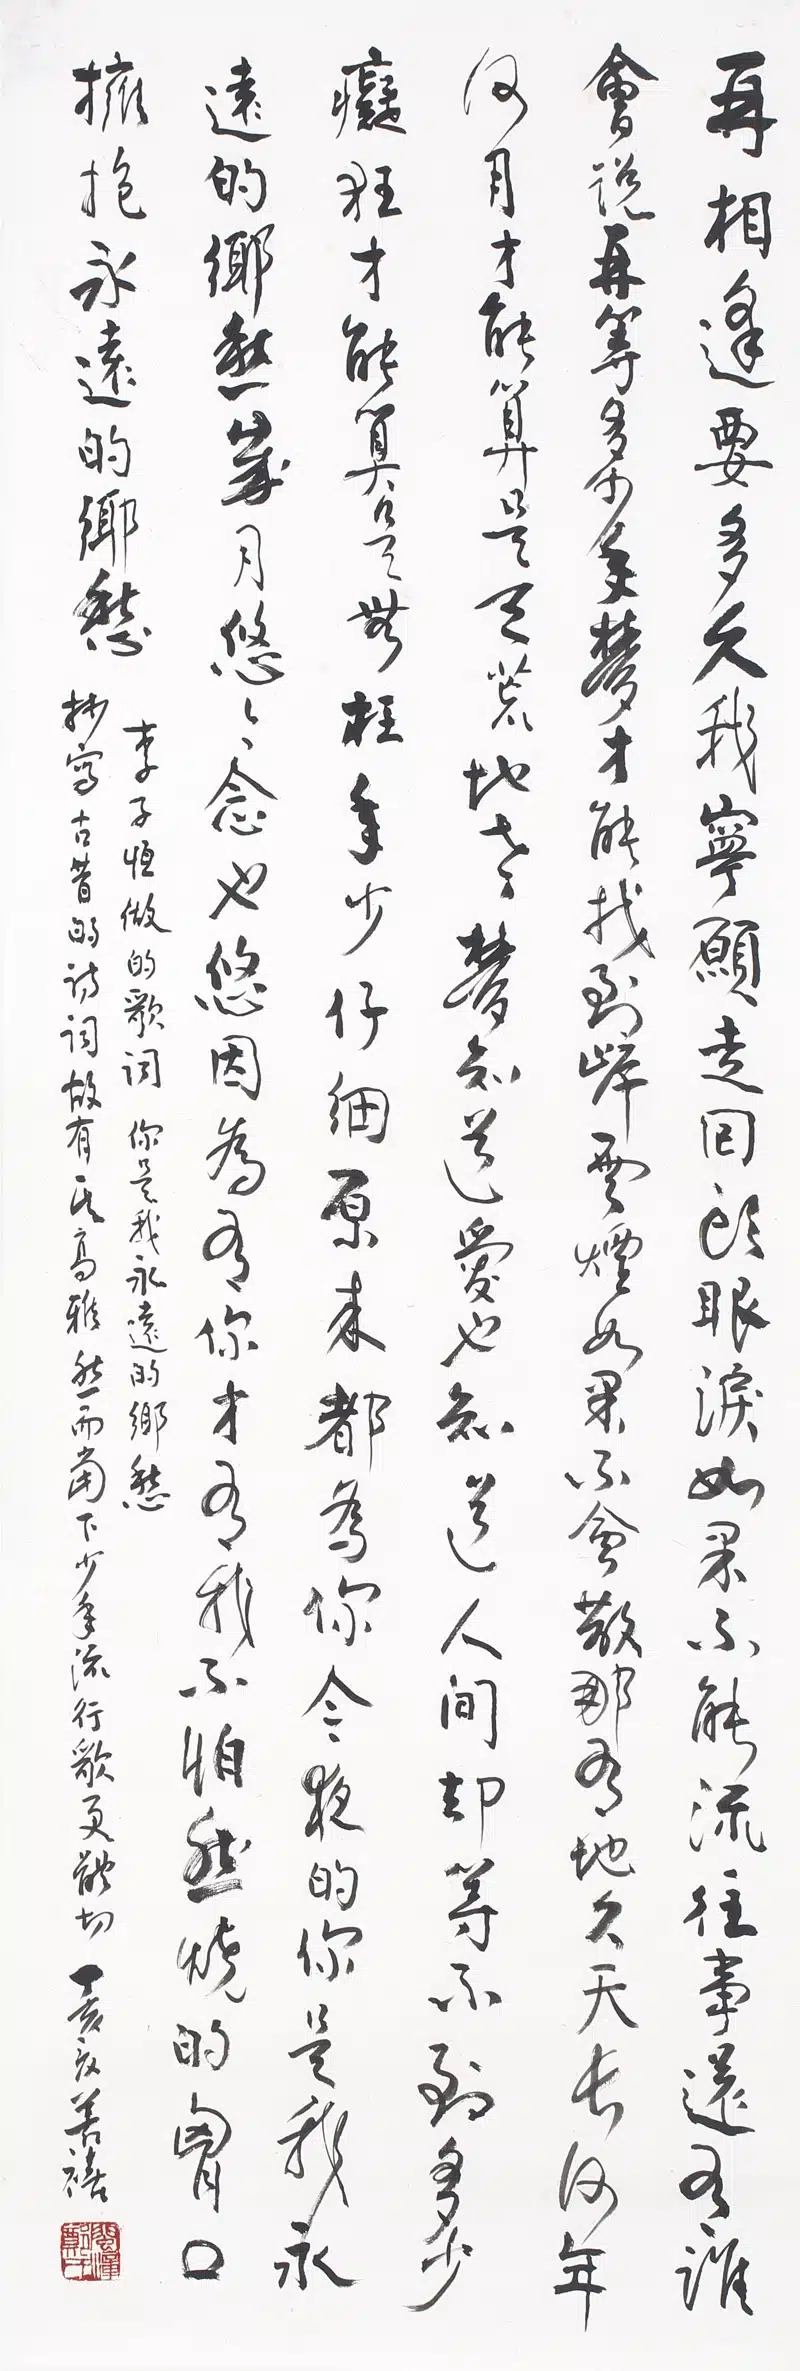 再相逢要多久我寧願走回頭眼淚如果不能流往事還有誰
會說再等多少年夢才能找到岸雲煙如果不會散那有地久天長何年
何月才能算是天荒地老夢知道愛也知道人間却等不到多少
癡狂才能算是無枉年少仔細原來都為你今夜的你是我永
遠的鄉愁歲月悠々念也悠因為有你才有我不怕然燒的胸口
擁抱永遠的鄉愁
李子恒做的歌詞 你是我永遠的鄉愁
抄寫古昔的詩詞故有其高雅然而當下少年流行歌更體切 丁亥 善禧